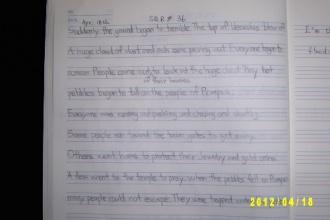 Apr. 18th SQR # 36 I'm t
Suddenly the ground began to tremble. The top of Vesuvius blew off
A huge cloud of dust and ash came pouring out. Everyone began to
scream. People came out to look at the huge cloud. Then hot
of their homes
pebbles began to fall on the people of Pompeii.
Everyone was running and and shouting.
Some people ran toward the town gates to get away.
Others went home to protect their jewelry and gold coins.
A few went to the temple to pray, when the pebbles fell on Pompeii
many people could not escape. They were trapped
2012/04/18